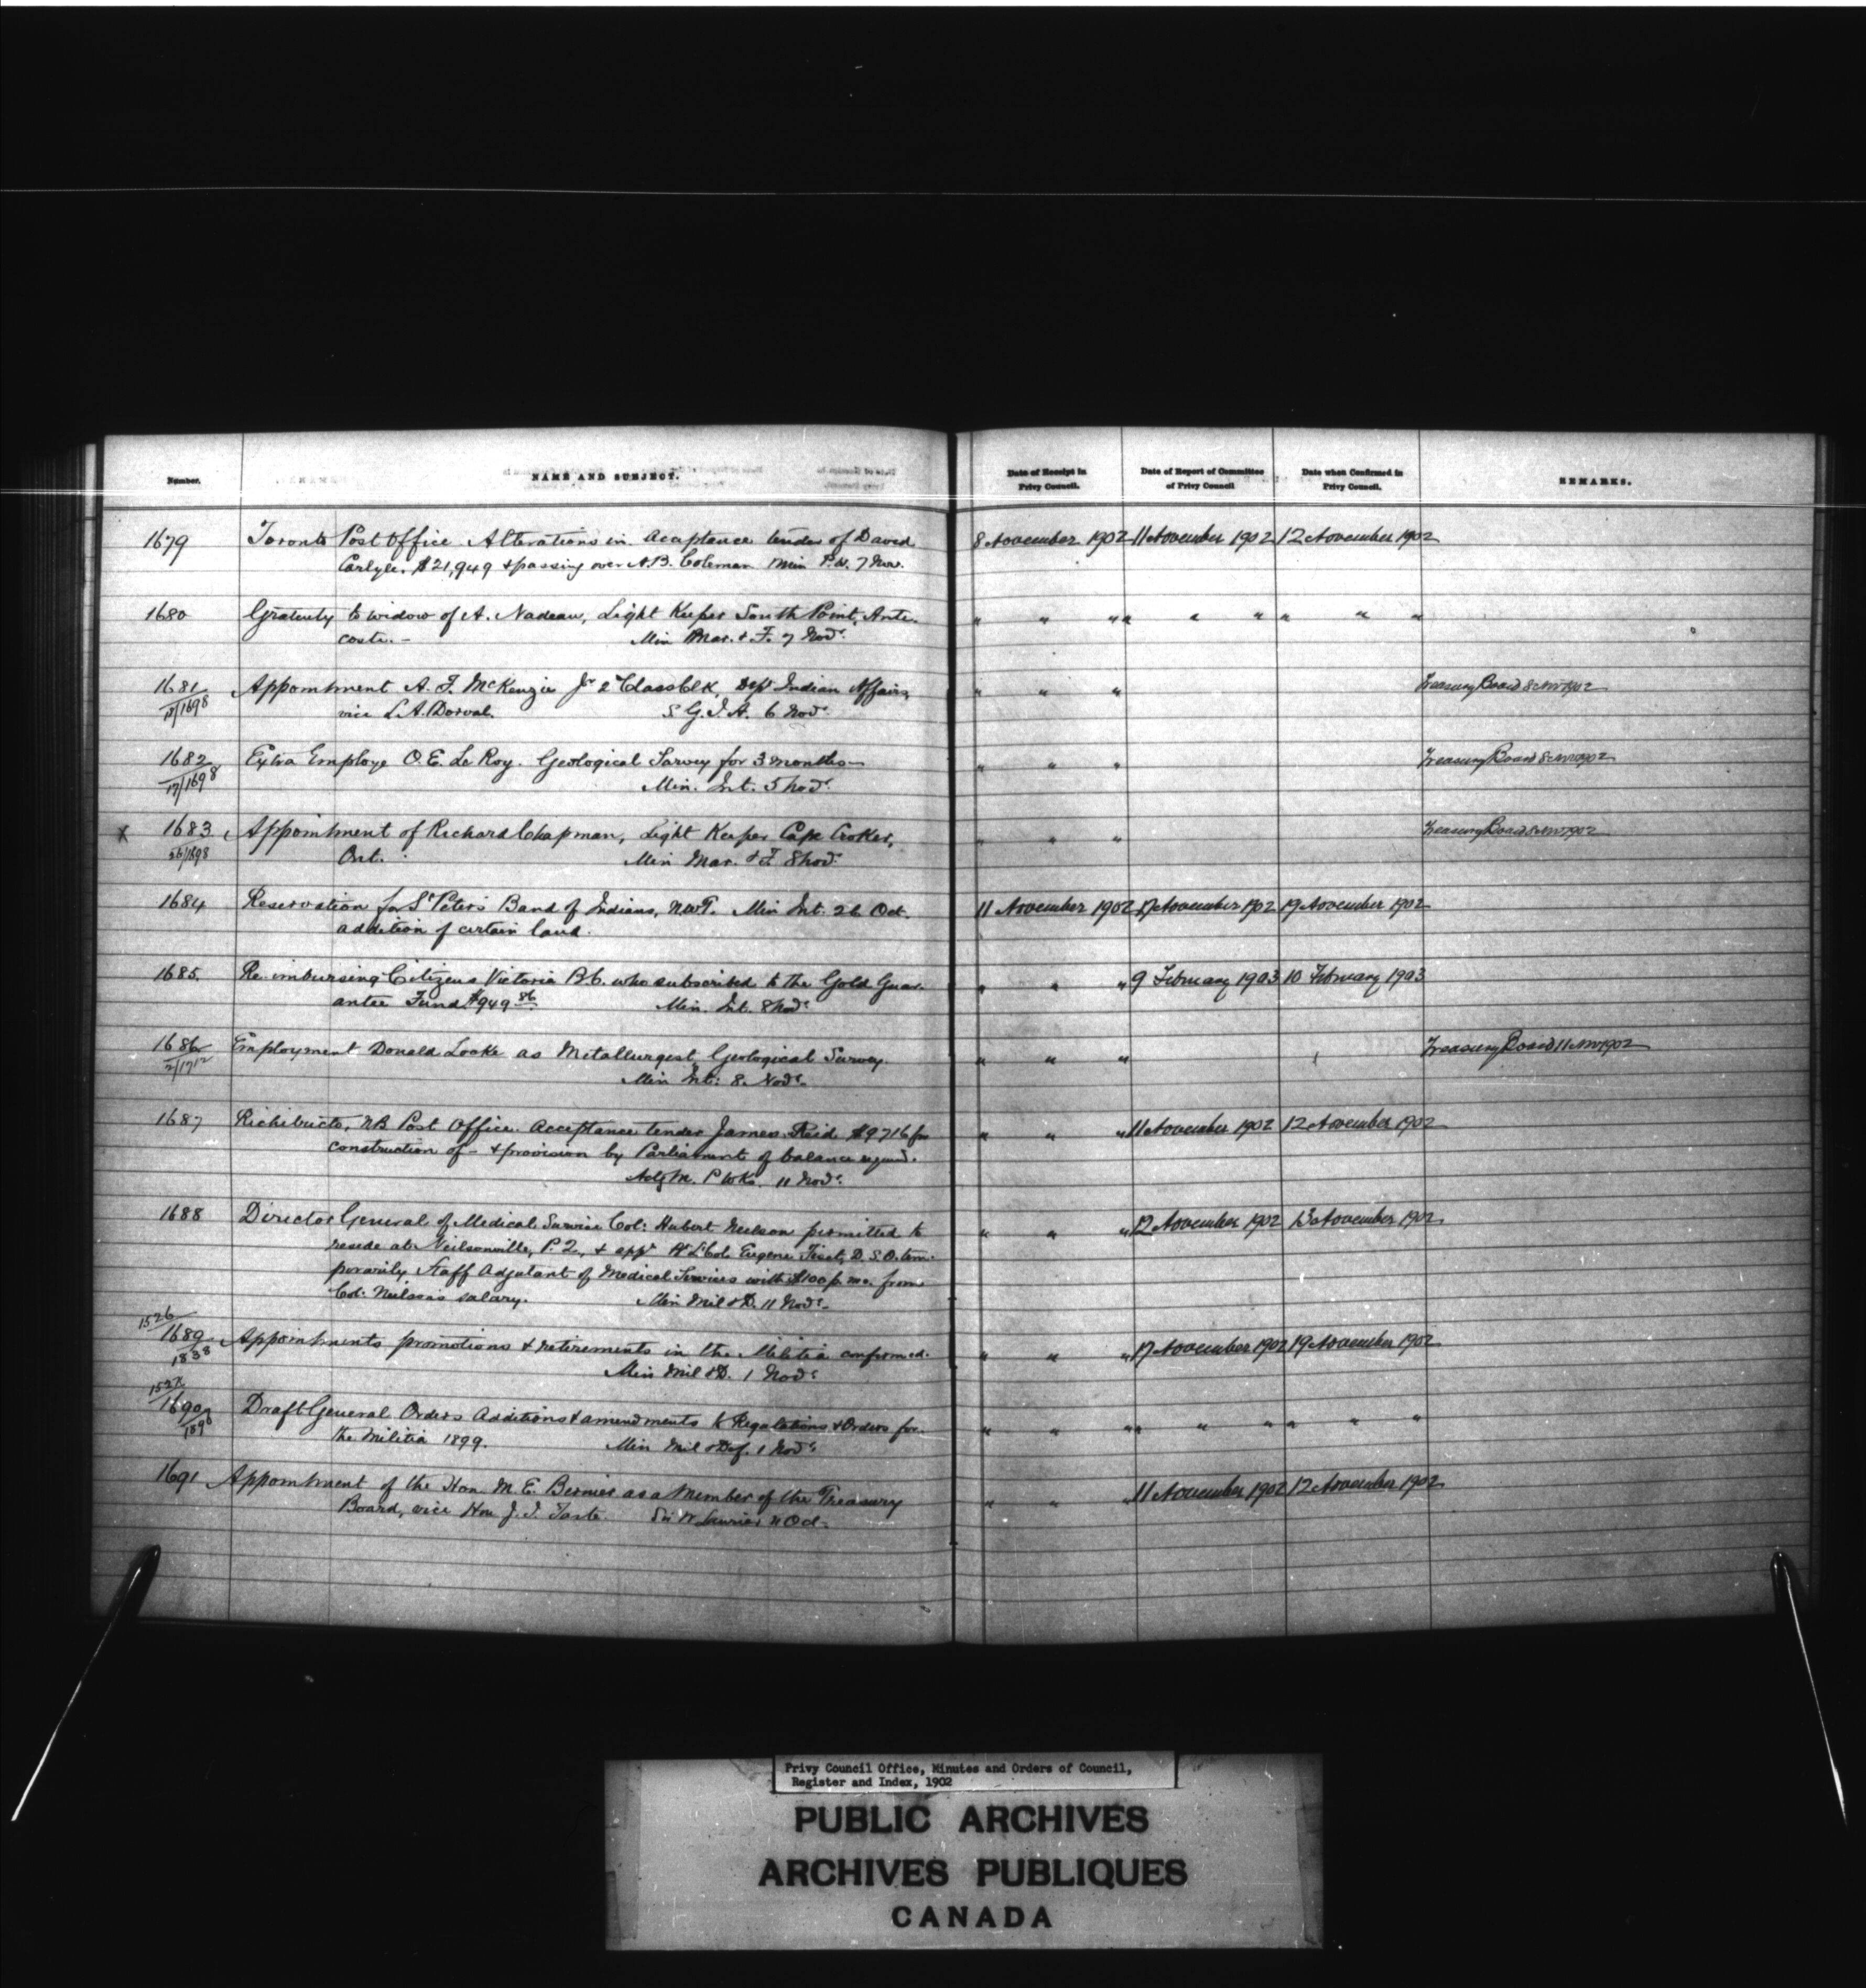 Number.
NAME AND SUBJECT.
Date of Receipt in Privy Council.
Date of Report of Committee of Privy Council
Date when Confirmed in Privy Council.
REMARKS.
1679 Toronto Post Office Alterations in Acceptance tender of David 8 November 1902 11 November 1902 12 November 1902
Carlyle. $21,949 + passing over A.B. Coleman Min P.W. 7 Nov.
1680 Gratuity to widow of A. Nadeau, Light Keeper South Point, Anti- " " " " " " " " "
costi. - Min Mar. + F. 7 Novr.
1681 Appointment A. F. McKenzie Jr 2d Class Clk, Dept Indian Affairs, " " " Treasury Board 8 Nov 1902
18/1698 vice L.A. Dorval. S.G.I.A. 6 Novr.
1682 Extra Employe O.E. LeRoy. Geological Survey for 3 months - " " " Treasury Board 8 Nov 1902
17/1698 Min. Int. 5 Novr.
x 1683 Appointment of Richard Chapman, Light Keeper Cape Croker, " " " Treasury Board 8 Nov 1902
56/1698 Ont. Min Mar. + F 8 Novr.
1684 Reservation for St Peter's Band of Indians, N.W.T. Min Int. 26 Oct. 11 November 1902 17 November 1902 19 November 1902
addition of certain land.
1685 Re-imbursing Citizens Victoria B.C. who subscribed to the Gold Guar- " " " 9 February 1903 10 February 1903
antee Fund $949 86 Min. Int. 8 Novr
1686 Employment Donald Locke as Metallurgist, Geological Survey. " " " Treasury Board 11 Nov 1902
2/1712 Min Int: 8. Novr.
1687 Richibucto, N.B. Post Office. Acceptance tender James Reid $9716 for " " " 11 November 1902 12 November 1902
construction of - + provision by Parliament of balance required.
Actg M. P Wks. 11 Novr.
1688 Director General of Medical Service Col: Hubert Neilson permitted to " " " 12 November 1902 13 November 1902
reside at Neilsonville, P.Q., + appt Bt Lt Col. Eugene Fiset, D.S.O. tem-
porarily Staff Adjutant of Medical Services with $100 p. mo. from
Col: Neilson's salary. Min Mil & D. 11 Novr.
1526
1689 Appointments promotions + retirements in the Militia confirmed. " " " 17 November 1902 19 November 1902
1838 Min Mil & D. 1 Novr
1527
1690 Draft General Orders Additions + amendments to Regulations + Orders for " " " " " " " "
the Militia 1899. Min Mil & Def. 1 Novr
1691 Appointment of the Hon. M. E. Bernier as a Member of the Treasury " " " 11 November 1902 12 November 1902
Board, vice Hon J. I. Tarte. Sir W Laurier Oct.
Privy Council Office, Minutes and Orders of Council,
Register and Index, 1902
PUBLIC ARCHIVES
ARCHIVES PUBLIQUES
CANADA